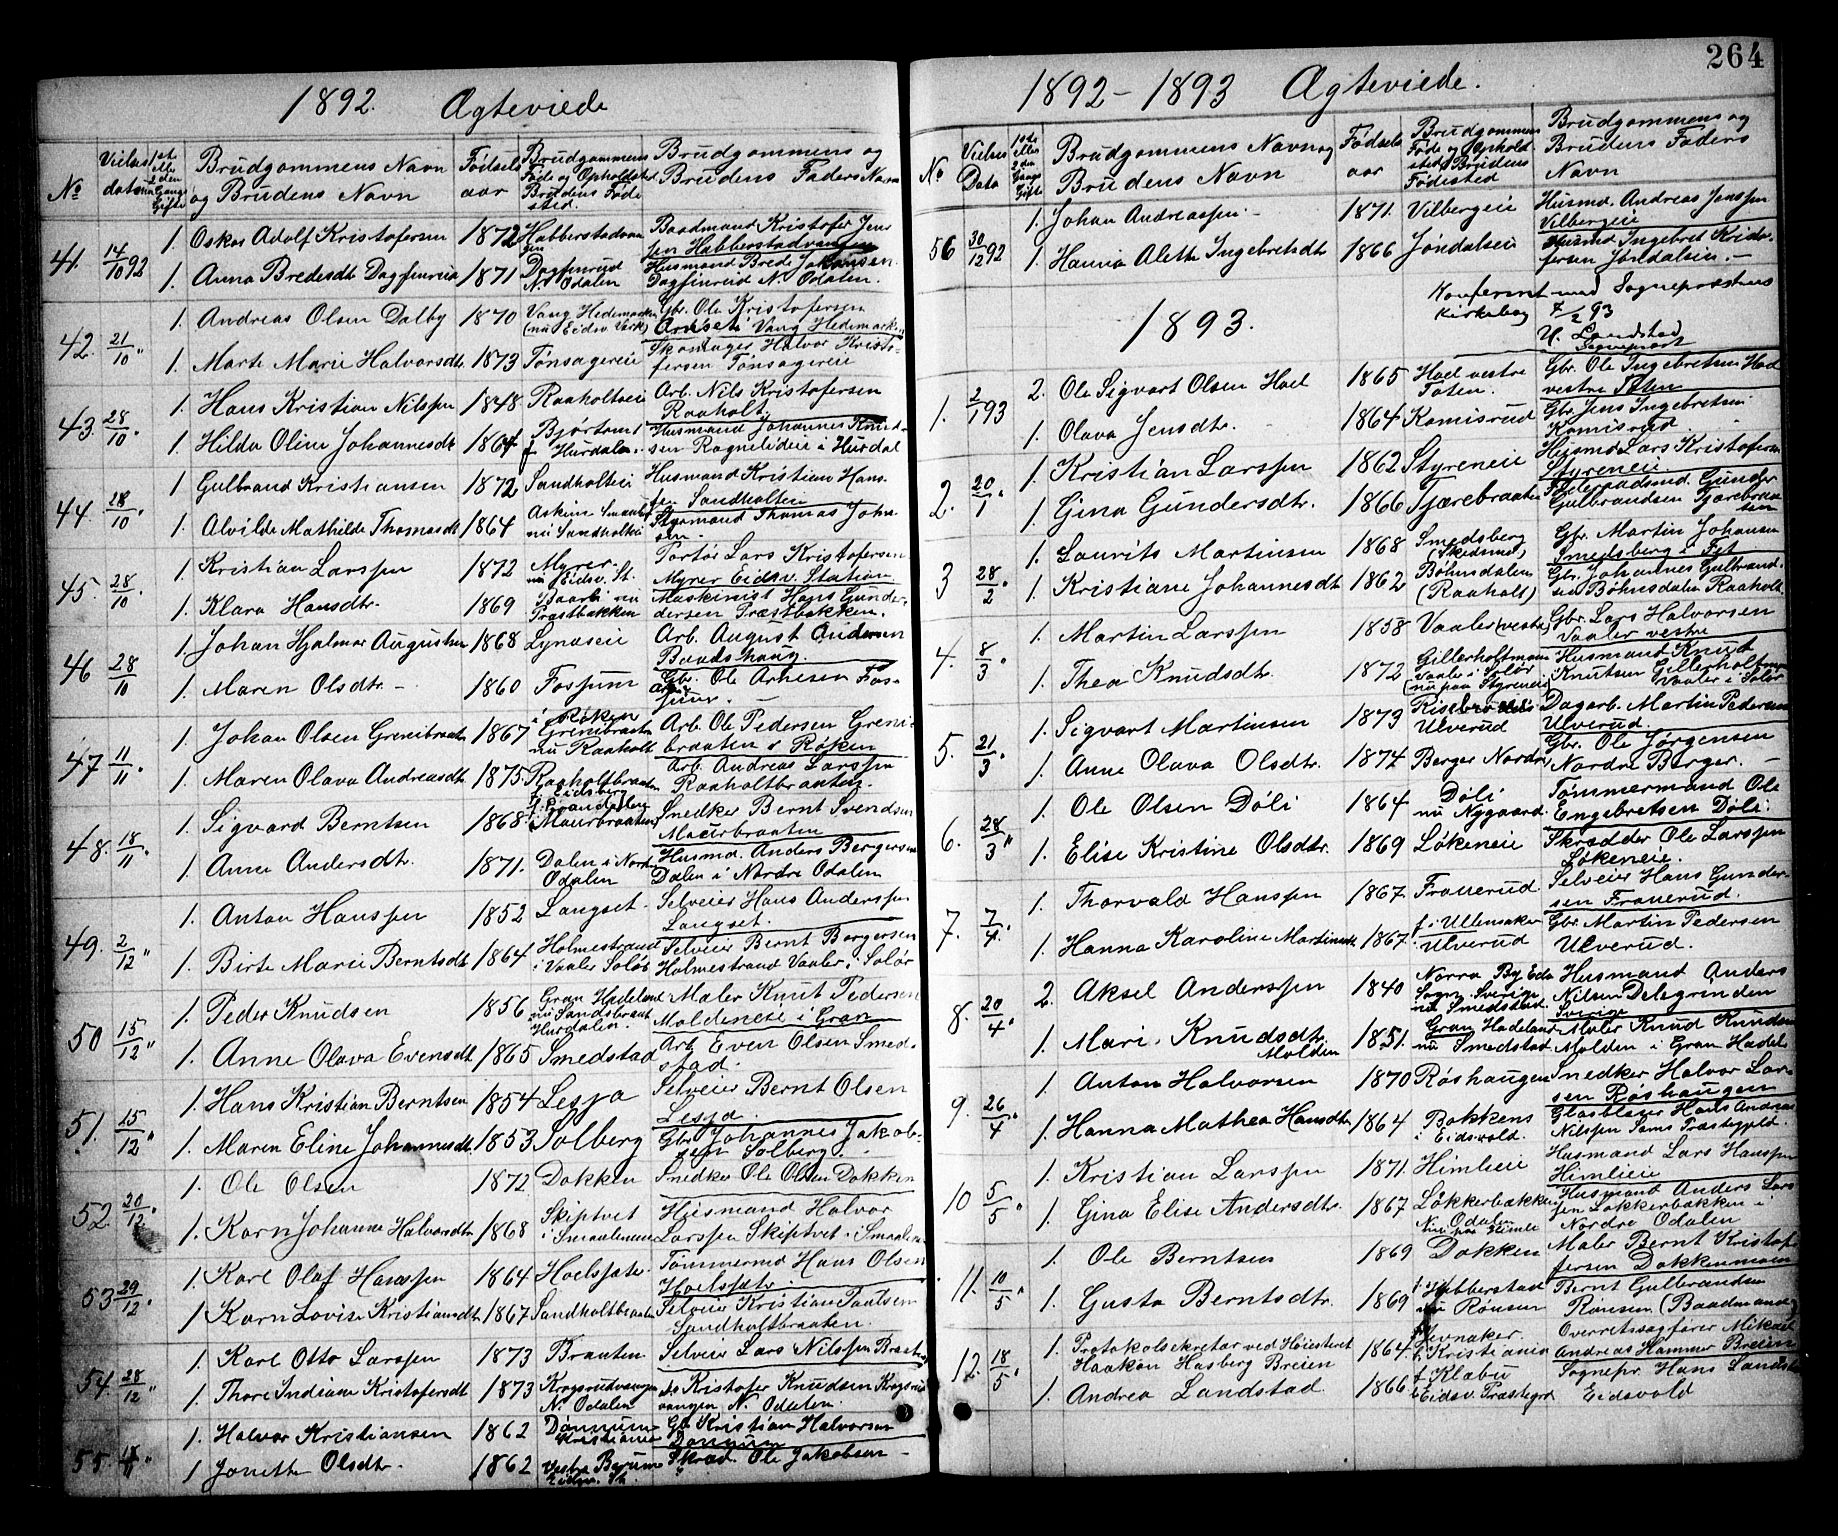 264
1892. Ægteviede
No
Vielses
datum
1ste
eller
2den
Gangs
Gifte
Brudgommens Navn
og Brudens Navn
Fødsels
aar
Brudgommens
Føde og Opholdssted
Brudens Føde
sted.
Brudgommens og
Brudens Faders Navn
41. 14/10 92
1. Oskar Adolf Kristofersen 1872 Habberstadvan Baadmand Kristofer Jens
sen Habberstadvangen
1. Anna Bredesdt Dagfinrud 1871 Dagfinrud Husmand Brede Johansen
N. Odalen Dagfinrud N. Odalen.
42. 21/10 "
1. Andreas Olsen Dalby 1870 Vang Hedemarken Gbr. Ole Kristofersen
(nu Eidsv. Værk) Vang Hedemarken
1. Marte Marie Halvorsdtr. 1873 Tønsagereie Skomager Halvor Kristo-
fersen Tønsagereie
43. 28/10 "
1. Hans Kristian Nilssen 1848 Raaholteie Arb. Nils Kristofersen
Raaholt.
1. Hilda Oline Johannesdt 1864 Hurdalen. Husmand Johannes Knud-
sen Ragnelideie i Hurdal
44. 28/10 "
1 Gulbrand Kristiansen 1872 Sandholtei Husmand Kristian Hans-
sen Sandholteie
1. Alvilde Mathilde Thomasdt 1864 Askim Smaal. Styrmand Thomas John
nu Sandholtei sen.
45. 28/10 "
1. Kristian Larssen 1872 Myrer Lars Kristofersen
nu Eidsv. St. Myrer Eidsv. Station
1. Klara Hansdtr. 1869 nu Maskinist Hans Gunder-
Præstbakken dersen Præstbakken.
46 28/10
1. Johan Hjalmar Augustsen 1868 Lynæseie Arb. August Andersen
Baadshaug.
1. Maren Olsdtr. - 1860 Fossum Gbr. Ole Arnesen Fos-
sum.
47 11/11 "
1. Johan Olsen Grenibraaten 1867 i Røken Arb. Ole Pedersen Greni-
Grenibraaten braaten i Røken
nu Raaholt
1. Maren Olava Andreasdtr. 1875 Raaholtbraaten Arb. Andreas Larssen
Raaholtbraaten.
48. 18/11 "
1. Sigvard Berntsen 1868 Snedker Bernt Svendsen
i Maurbraaten Maurbraaten
1. Anne Andersdtr. 1871. Dalen i Nord Husmd. Anders Bergersen
Odalen Dalen i Nordre Odalen
49. 2/12 "
1. Anton Hanssen 1852 Langset. Selveier Hans Anderssen
Langset.
1. Birte Marie Berntsdt 1864 Holmestrand Selveier Bernt Borgersen
i Vaaler Solør Holmestrand Vaaler i Solør
50 15/12 "
1. Peder Knudsen 1856 Gran Hadeland Maler Knut Pedersen
nu Sandsbraat Moldeneie i Gran
Hurdalen.
1. Anne Olava Evensdt 1865 Smedstad Arb. Even Olsen Smed-
stad.
51. 15/12 "
1. Hans Kristian Berntsen 1854 Lesja Selveier Bernt Olsen
Lesja.
1. Maren Eline Johannesdt. 1853 Solberg Gbr. Johannes Jakob-
sen Solberg.
52. 20/12 "
1. Ole Olsen 1872 Dokken Snedker Ole Olsen Dokken
1. Karn Johanne Halvorsdtr 1868 Skiptvet Husmand Halvor
i Smaalenene Larssen Skiptvet i Smaalen.
53 29/12 "
1. Karl Olaf Hanssen 1864 Hoelsjøte Tømmermd Hans Olsen
Hoelsjøte.
1 Karn Lovise Kristiansdt 1867 Sandholtbraaten Selveier Kristian Paulsen
Sandholtbraaten.
54. 28/12 "
1. Karl Otto Larssen 1873 Braaten Selveier Lars Nilssen Braaten
1. Thore Indiane Kristofersdt 1873 Krogsrudvangen Kristofer Knudsen Krogsrud
N. Odalen vangen N. Odalen.
55.
1. Halvor Kristiansen 1862 Dønnum Gb. Kristian Halvorsen
Kristiania Dønnum
1 Jonette Olsdtr. 1862 Vestre Bærum Skræd. Ole Jakobsen
1892 - 1893 Ægteviede.
No
Vielses
Data
1ste
eller
2den
Gangs
Gifte
Brudgommens Navn og
Brudens Navn
Fødsels
aar
Brudgommens
Føde og Ophold
sted Brudens
Fødested
Brudgommens og
Brudens Faders
Navn
56 30/12 92
1. Johan Andreassen - 1871. Vilbergeie Husmd. Andreas Jenssen
Vilbergeie
1. Hanna Alette Ingebretsdt 1866 Jøndaleie Husmd Ingebret Kristo-
fersen Jøndaleie. -
Konferert med Sognepræstens
Kirkebog 7/2 93
H. Landstad
Sognepræst
1893.
1. 2/1 93
2. Ole Sigvart Olsen Hoel 1865 Hoel vestre Gbr. Ole Ingebretsen Hoel
Toten. vestre Toten
1. Olava Jensdtr. 1864 Komisrud Gbr. Jens Ingebretsen
Komisrud.
2. 20/1 "
1. Kristian Larssen 1862 Styreneie Husmd Lars Kristofersen
Styreneie.
1. Gina Gundersdtr. 1866 Tjærebraaten Gunder
Gulbrandsen Tjærebraa
ten
3 28/2 "
1. Laurits Martinsen 1868 Smedsberg Gbr. Martin Johansen
(Skedsmo) Smedsberg i Fet
1. Kristiane Johannesdt 1862 Bøhnsdalen Gbr. Johannes Gulbrand-
(Raaholt) sen Bøhnsdalen Raaholt
4. 8/3 "
1. Martin Larssen 1858 Vaaler (vestre) Gbr. Lars Halvorsen
Vaaler vestre
1. Thea Knudsdtr. 1872 Gillerholtmoen Husmand Knud
Vaaler i Solør Knutsen Gillerholtmoen
(nu paa Styreneie) Vaaler i Solør
5. 21/3 "
1. Sigvart Martinsen 1873 Dagarb. Martin Pedersen
Ulverud Ulverud.
1. Anne Olava Olsdtr. 1874 Berger Nordre Gbr. Ole Jørgensen
Nordre Berger. -
6. 28/3 "
1. Ole Olsen Døli 1864 Døli Tømmermand Ole
nu Nygaard. Engebretsen Døli.
1. Elise Kristine Olsdtr. 1869 Løkeneie Skrædder Ole Larssen
Løkeneie.
7. 7/4. "
1. Thorvald Hanssen 1867. Frauerud. Selveier Hans Gunder-
sen Frauerud.
1. Hanna Karoline Martinsdt 1867. f. i Ullensaker Gbr. Martin Pedersen
Ulverud Ulverud.
8. 20/4 "
2. Aksel Anderssen 1840 Norra By Eda Husmand Anders
Sogn. Sverige Nilsen Delegrinden
nu Smedstad. Sverige
1. Mari Knudsdtr. 1851. Gran Hadeland Maler Knud Knudsen
Molden nu Smedstad. Molden i Gran Hadel.
9. 26/4 "
1. Anton Halvorsen 1870 Røshaugen Snedker Halvor Lar-
sen Røshaugen
1. Hanna Mathea Hansdtr. 1864 Bakkens Glasblæser Hans Andreas
i Eidsvold. Nilssen Sems Præstegjeld.
10 5/5 "
1. Kristian Larssen 1871. Himleeie Husmand Lars Hanssen
Himleeie
1. Gina Elise Andersdtr. 1867 Løkkerbakken Husmand Anders Lars
N. Odalen sen Løkkerbakken i
Nu paa Himle Nordre Odalen
11. 10/5 "
1. Ole Berntsen 1869 Dokken Maler Bernt Kristof-
fersen Dokkenmoen
1. Gusta Berntsdtr. 1869 f. Habberstad Bernt Gulbrandsen
nu Rønsen Rønsen (Baadmand)
12. 18/5 "
1. Protokolsekretær ved Høiesteret 1864. f. Jevnaker. Overretssagfører Mikael
Haakon Hasberg Breien Kristiania Andreas Hammer Breien
1. Andrea Landstad 1866 f. Klæbu Sognepr. Hans Landstad
Eidsv. Præstegrd Eidsvold